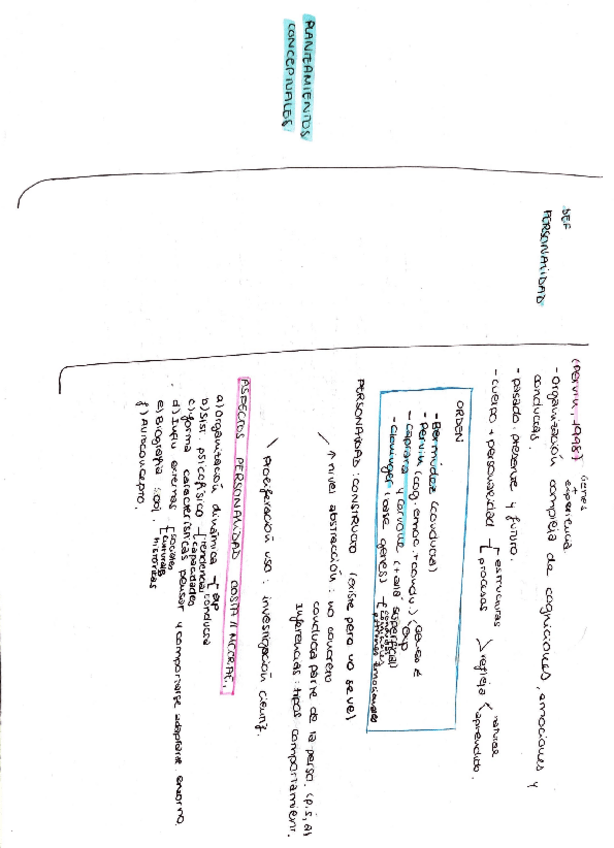 PLANTEAMIENTOS
CONCEPTUALES
DEF
PERSONALIDAD
(Pervin, 1998) genes
experiencia
- Organización compleja de cogniciones, emociones y
conductas.
- pasado, presente y futuro.
- cuerpo + personalidad - [ estructuras
procesos
refleja
natural
aprendido.
ORDEN
- Bermúdez (conducta)
- Pervin (cog. emoc. + condu.)
- Caprara y Cervone (+ allá superficial)
- Cloninger (base genes)
PERSONALIDAD: CONSTRUCTO (existe pero no se ve)
↑ nivel abstracción: no concreto
conducta parte de la perso. (p, s, a)
Inferencias: tipos comportamient.
Proliferación uso: investigación científ.
ASPECTOS PERSONALIDAD COSTA
a) Organización dinámica - [ exp
conducta
b) Sist. psicofísico - [ tendencias
capacidades
c) forma características pensar y comportarse adaptarse entorno.
d) Influ externas [ sociales
culturales
históricas
e) Biografía
f) Autoconcepto.